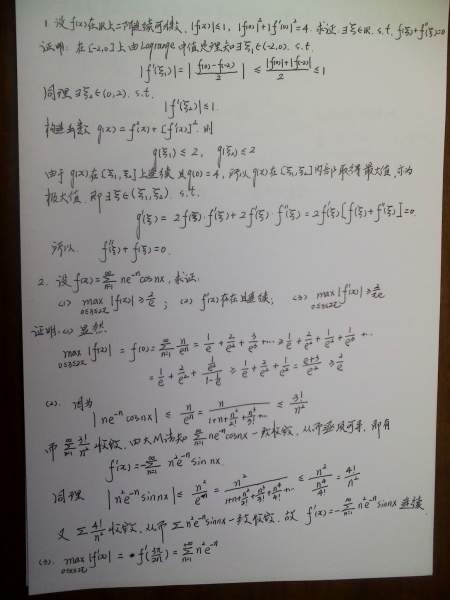 1. 设f(x)在R上二阶连续可微, |f(x)|≤1, |f(0)|²+|f'(0)|²=4. 求证: ∃ξ∈R. s.t. f(ξ)+f''(ξ)=0
证明: 在[-2,0]上由Lagrange中值定理知∃ξ₁∈(-2,0). s.t.
|f'(ξ₁)| = |(f(0)-f(-2))/2| ≤ (|f(0)|+|f(-2)|)/2 ≤ 1
同理∃ξ₂∈(0,2). s.t.
|f'(ξ₂)| ≤ 1.
构造函数 g(x) = f²(x) + [f'(x)]². 则
g(ξ₁) ≤ 2, g(ξ₂) ≤ 2
由于g(x)在[ξ₁,ξ₂]上连续且g(0)=4, 所以g(x)在[ξ₁,ξ₂]内部取得最大值, 亦为
极大值. 即∃ξ∈(ξ₁,ξ₂) s.t.
g'(ξ) = 2f(ξ)·f'(ξ) + 2f'(ξ)·f''(ξ) = 2f'(ξ)[f(ξ)+f''(ξ)] = 0.
所以 f''(ξ)+f(ξ)=0.
2. 设f(x)=∑_{n=1}^∞ ne⁻ⁿcosnx, 求证:
(1) max_{0≤x≤2π}|f(x)| ≥ 2/e; (2) f'(x)存在且连续; (3) max_{0≤x≤2π}|f'(x)| ≥ 2/πe
证明: (1) 显然
max_{0≤x≤2π}|f(x)| = f(0) = ∑_{n=1}^∞ n/eⁿ = 1/e + 2/e² + 3/e³ + ... ≥ 1/e + 2/e² + 1/e³ + 1/e⁴ + ...
= 1/e + 2/e² + (1/e³)/(1-1/e) ≥ 1/e + 2/e² + 1/e² = (e+3)/e² ≥ 2/e
(2). 因为
|ne⁻ⁿcosnx| ≤ n/eⁿ = n/(1+n+n²/2!+n³/3!+...) ≤ 3!/n²
而 ∑_{n=1}^∞ 3!/n² 收敛, 由大M法知 ∑_{n=1}^∞ ne⁻ⁿcosnx 一致收敛, 从而逐项可导, 即有
f'(x) = -∑_{n=1}^∞ n²e⁻ⁿ sin nx.
同理 |n²e⁻ⁿsinnx| ≤ n²/eⁿ = n²/(1+n+n²/2!+n³/3!+n⁴/4!+...) ≤ n²/(n⁴/4!) = 4!/n²
又 ∑4!/n² 收敛, 从而 ∑n²e⁻ⁿsinnx 一致收敛, 故 f'(x) = -∑_{n=1}^∞ n²e⁻ⁿsinnx 连续.
(3). max_{0≤x≤2π}|f'(x)| = f'(3π/2n) = ∑_{n=1}^{+∞} n²e⁻ⁿ